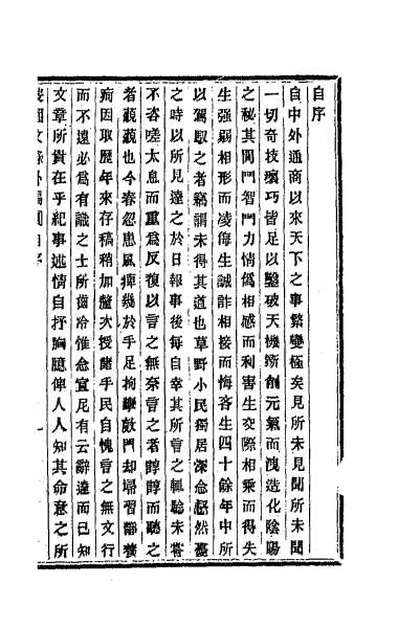 自序
自中外通商以來天下之事繁變極矣見所未見聞所未聞
一切奇技瓌巧皆足以鑿破天機斵削元氣而洩造化陰陽
之秘其間鬥智鬥力情僞相感而利害生交際相乘而得失
生強弱相形而凌侮生誠詐相接而悔吝生四十餘年中所
以駕馭之者竊謂未得其道也草野小民獨居深念怒然憂
之時以所見達之於日報事後每自幸其所言之輒驗未嘗
不咨嗟太息而重爲反復以言之無奈言之者諄諄而聽之
者藐藐也今春忽患風痺幾於手足拘攣敨門却埽習靜養
疴因取歷年來存稿稍加釐次授諸手民自愧言之無文行
而不遠必爲有識之士所齒冷惟念宣尼有云辭達而已知
文章所貴在乎紀事述情自抒胸臆俾人人知其命意之所
弢園文錄外編 自序 一